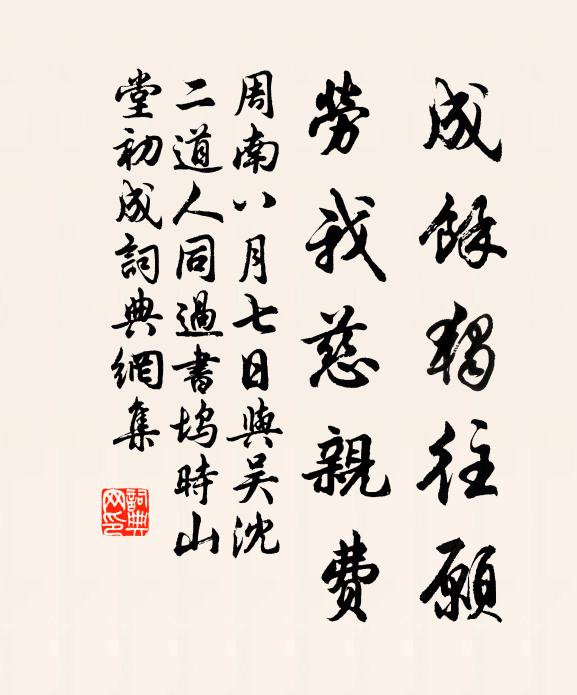 成餘獨往願
勞我慈親費
周南八月七日與吴沈
二道人同過書塢時山
堂初成詞典網集
詞典
网印